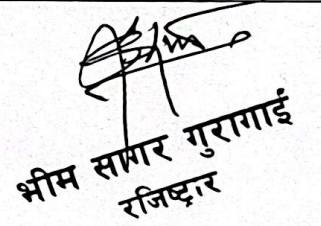 भीम सागर गुरागाई
रजिष्ट्रार